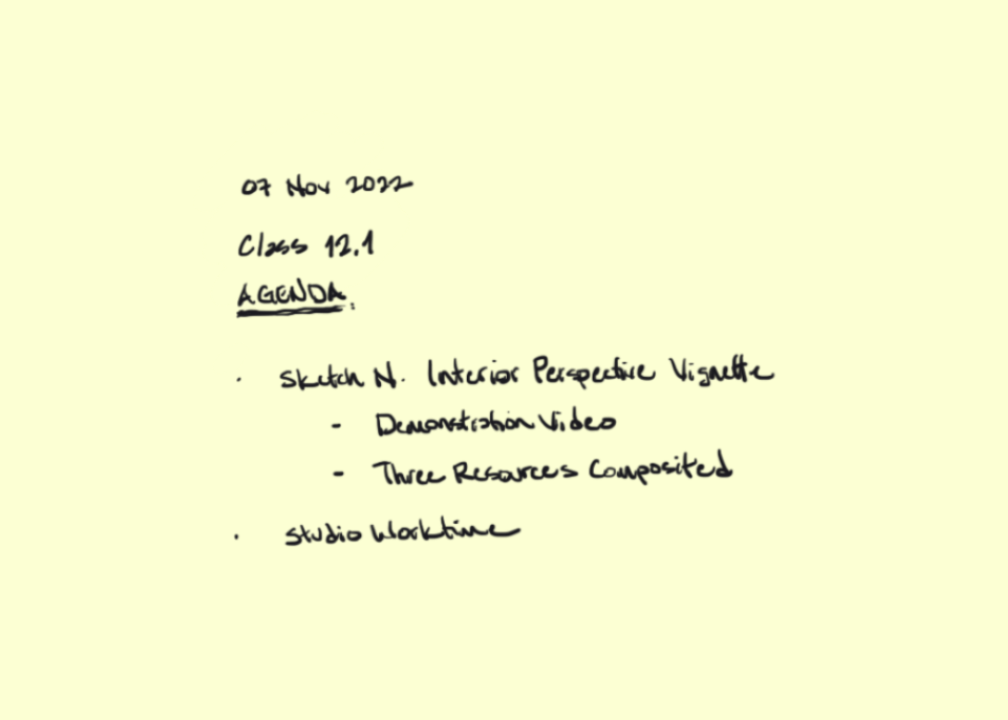 07 Nov 2022
Class 12.1
AGENDA:
· Sketch N. Interior Perspective Vignette
- Demonstration Video
- Three Resources Composited
· Studio Worktime